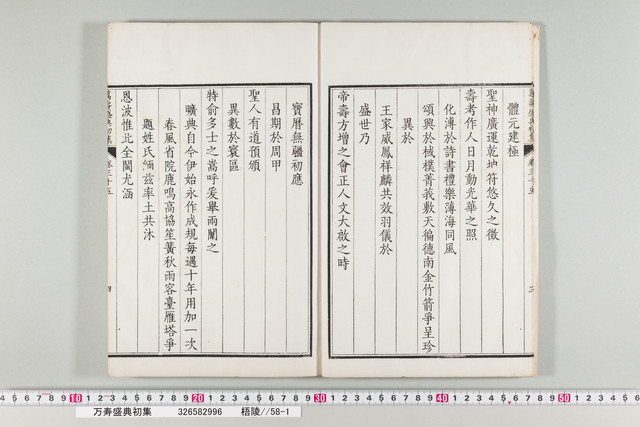 體元建極
聖神廣運乾坤符悠久之徵
壽考作人日月動光華之照
化溥於詩書禮樂薄海同風
頌興於棫樸菁莪敷天徧德南金竹箭爭呈珍
異於
王家威鳳祥麟共效羽儀於
盛世乃
帝壽方增之會正人文大啟之時
寶曆無疆初應
昌期於周甲
聖人有道預頒
異數於寰區
特俞多士之嵩呼爰舉兩闈之
曠典自今伊始永作成規每週十年用加一次
春風省院鹿鳴高協笙簧秋雨容臺雁塔爭
題姓氏緬茲率土共沐
恩波惟北全閩尤涵
萬壽盛典初集
卷三十五
四
10
20
30
40
50
万寿盛典初集 326582996 梧陵//58-1